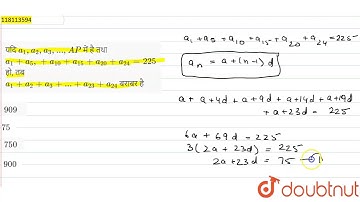 118113594
यदि a₁, a₂, a₃, ..., AP में है तथा
a₁ + a₅ + a₁₀ + a₁₅ + a₂₀ + a₂₄ = 225
हो, तब
a₁ + a₂ + a₃ + ... + a₂₃ + a₂₄ बराबर है
909
75
750
900
a₁ + a₅ + a₁₀ + a₁₅ + a₂₀ + a₂₄ = 225
aₙ = a + (n-1) d
a + a + 4d + a + 9d + a + 14d + a + 19d
+ a + 23d = 225
6a + 69d = 225
3 (2a + 23d) = 225
2a + 23d = 75
doubtnut